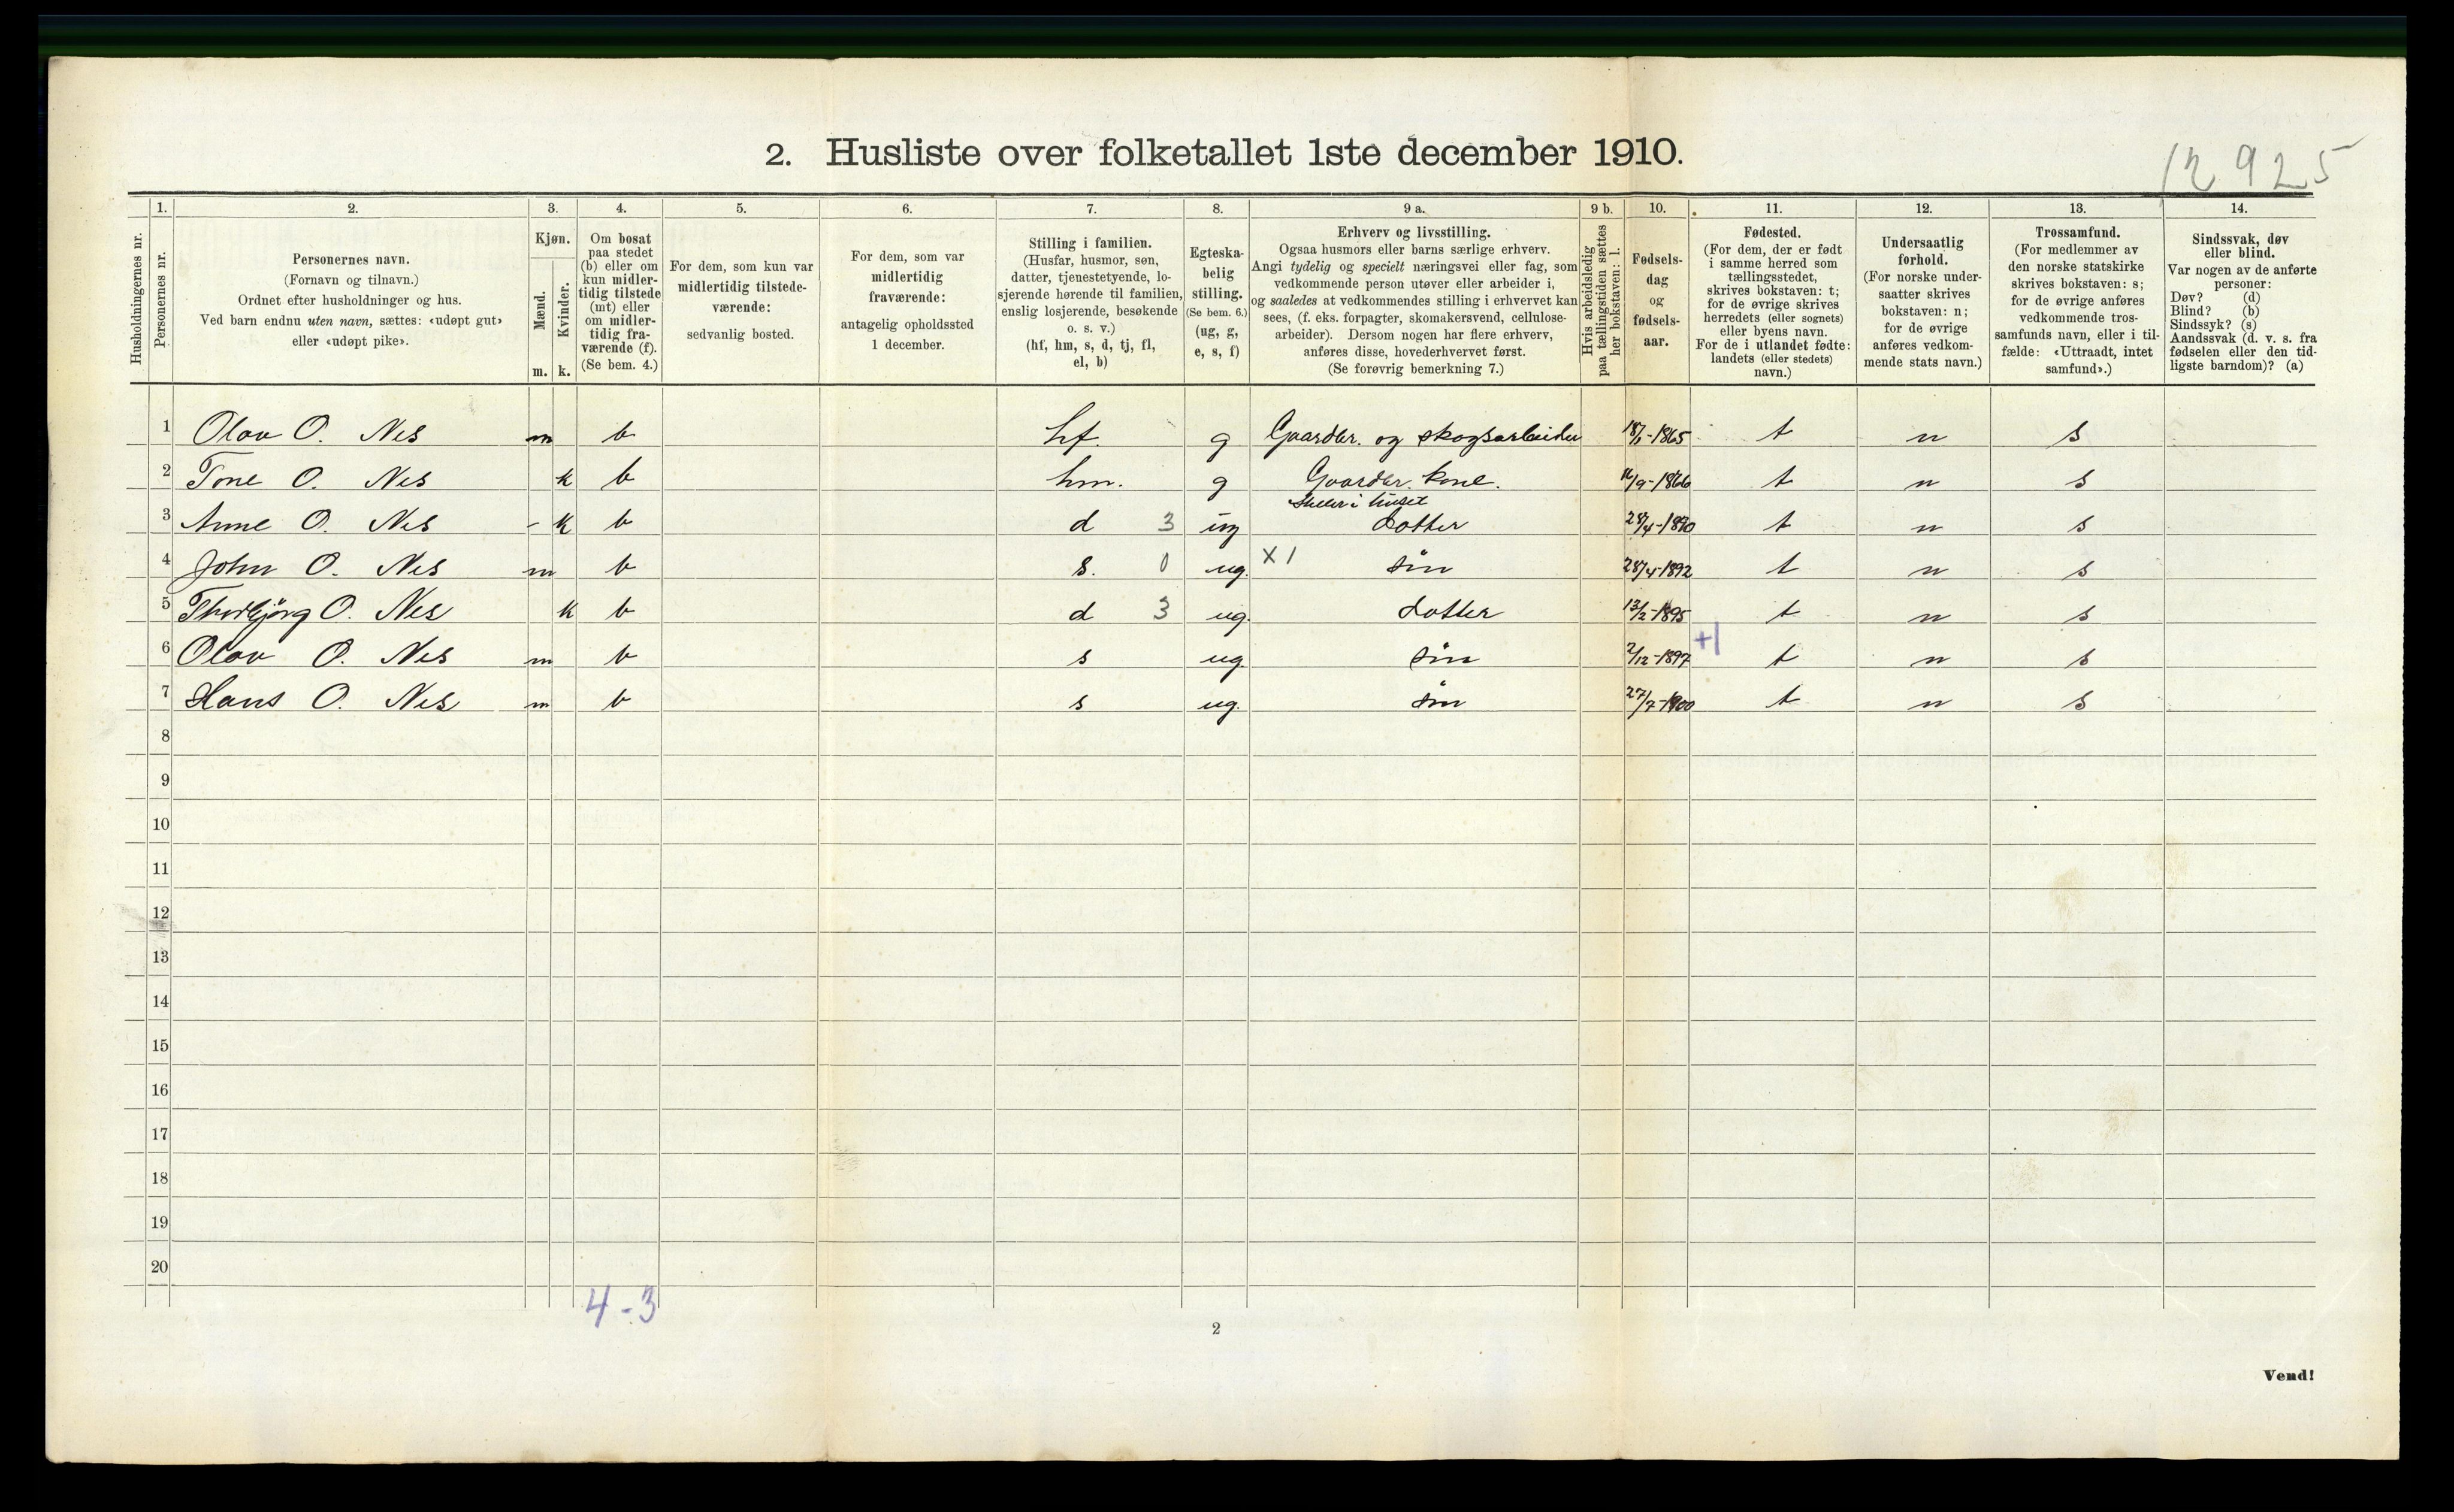 2. Husliste over folketallet 1ste december 1910.
12925
1. 2. 3. 4. 5. 6. 7. 8. 9 a. 9 b. 10. 11. 12. 13. 14.
Husholdningernes nr.
Personernes nr.
Personernes navn.
(Fornavn og tilnavn.)
Ordnet efter husholdninger og hus.
Ved barn endnu uten navn, sættes: «udøpt gut»
eller «udøpt pike».
Kjøn.
Mænd.
Kvinder.
m. k.
Om bosat
paa stedet
(b) eller om
kun midler-
tidig tilstede
(mt) eller
om midler-
tidig fra-
værende (f).
(Se bem. 4.)
For dem, som kun var
midlertidig tilstede-
værende:
sedvanlig bosted.
For dem, som var
midlertidig
fraværende:
antagelig opholdssted
1 december.
Stilling i familien.
(Husfar, husmor, søn,
datter, tjenestetyende, lo-
sjerende hørende til familien,
enslig losjerende, besøkende
o. s. v.)
(hf, hm, s, d, tj, fl,
el, b)
Egteska-
belig
stilling.
(Se bem. 6.)
(ug, g,
e, s, f)
Erhverv og livsstilling.
Ogsaa husmors eller barns særlige erhverv.
Angi tydelig og specielt næringsvei eller fag, som
vedkommende person utøver eller arbeider i,
og saaledes at vedkommendes stilling i erhvervet kan
sees, (f. eks. forpagter, skomakersvend, cellulose-
arbeider). Dersom nogen har flere erhverv,
anføres disse, hovederhvervet først.
(Se forøvrig bemerkning 7.)
Hvis arbeidsledig
paa tællingstiden sættes
her bokstaven: l.
Fødsels-
dag
og
fødsels-
aar.
Fødested.
(For dem, der er født
i samme herred som
tællingsstedet,
skrives bokstaven: t;
for de øvrige skrives
herredets (eller sognets)
eller byens navn.
For de i utlandet fødte:
landets (eller stedets)
navn.)
Undersaatlig
forhold.
(For norske under-
saatter skrives
bokstaven: n;
for de øvrige
anføres vedkom-
mende stats navn.)
Trossamfund.
(For medlemmer av
den norske statskirke
skrives bokstaven: s;
for de øvrige anføres
vedkommende tros-
samfunds navn, eller i til-
fælde: «Uttraadt, intet
samfund».)
Sindssvak, døv
eller blind.
Var nogen av de anførte
personer:
Døv? (d)
Blind? (b)
Sindssyk? (s)
Aandssvak (d. v. s. fra
fødselen eller den tid-
ligste barndom)? (a)
1 Olav O. Nes m b hf. g Gaardbr. og skogsarbeider 18/1-1865 t n s
2 Tone O. Nes k b hm. g Gaardbr. kone. 16/9-1866 t n s
Steller i huset
3 Anne O. Nes - k b d 3 ug dotter 28/4-1890 t n s
4 John O. Nes m b s. 0 ug. X 1 sön 28/4-1892 t n s
5 Thorbjörg O. Nes k b d 3 ug. dotter 13/2-1895 t n s
6 Olav O. Nes m b s ug. sön 2/12-1897 +1 t n s
7 Hans O. Nes m b s ug. sön 27/7-1900 t n s
8
9
10
11
12
13
14
15
16
17
18
19
20
4-3
2
Vend!